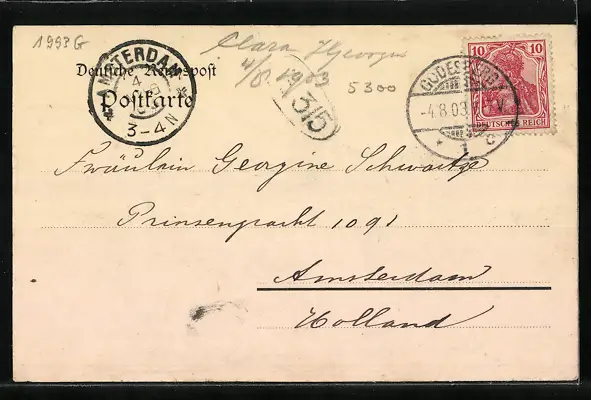 1993G
Clara
4/8 1903
5300
AMSTERDAM
4
3-4 N
Deutsche Reichspost
Postkarte
315
GODESBERG
-4.8.03. V.
* 1 c
10 10
DEUTSCHES REICH
Fräulein Georgine Schwartze
Prinsengracht 1091
Amsterdam
Holland